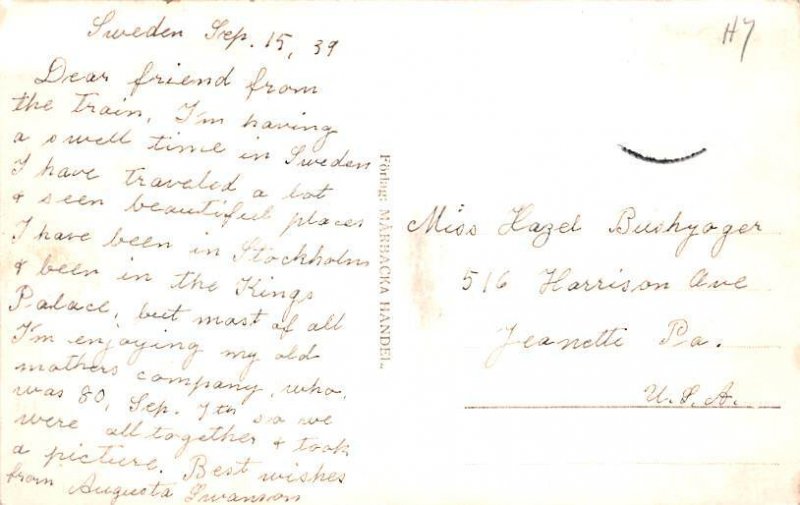 Sweden Sep. 15, 39
Dear friend from
the train, I'm having
a swell time in Sweden
I have traveled a lot
& seen beautiful places
I have been in Stockholm
& been in the Kings
Palace, but most of all
I'm enjoying my old
mothers company, who,
was 80, Sep. 7th so we
were all together & took
a picture. Best wishes
from Augusta Swanson
Förlag: MÅRBACKA HANDEL.
H7
Miss Hazel Bushyager
516 Harrison Ave
Jeanette Pa.
U.S.A.